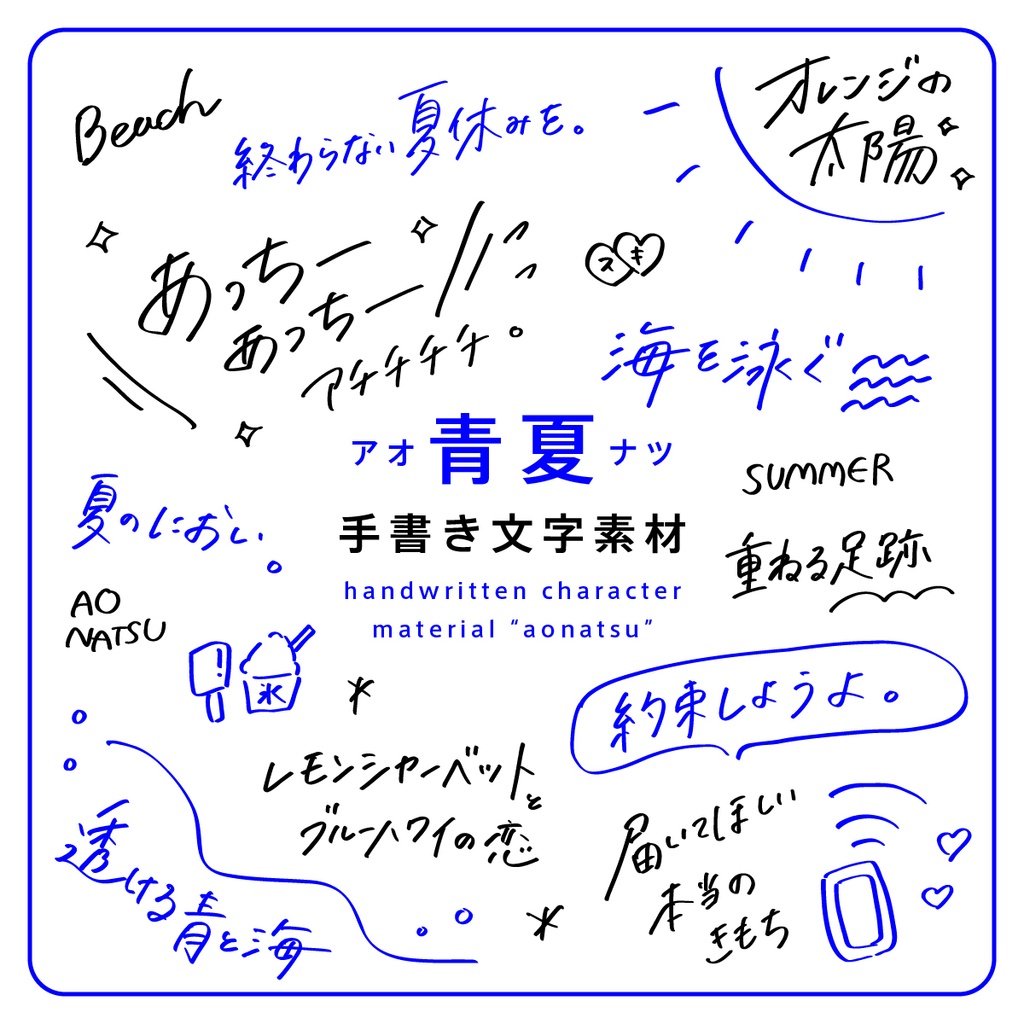 Beach
終わらない夏休みを。
オレンジの
太陽
あっちー
あっちー
アチチチチ。
スキ
海を泳ぐ
アオ青夏ナツ
手書き文字素材
handwritten character
material “aonatsu”
夏のにおい
SUMMER
重ねる足跡
AO
NATSU
氷
約束しようよ。
レモンシャーベットと
ブルーハワイの恋
透ける青と海
届いてほしい
本当の
きもち